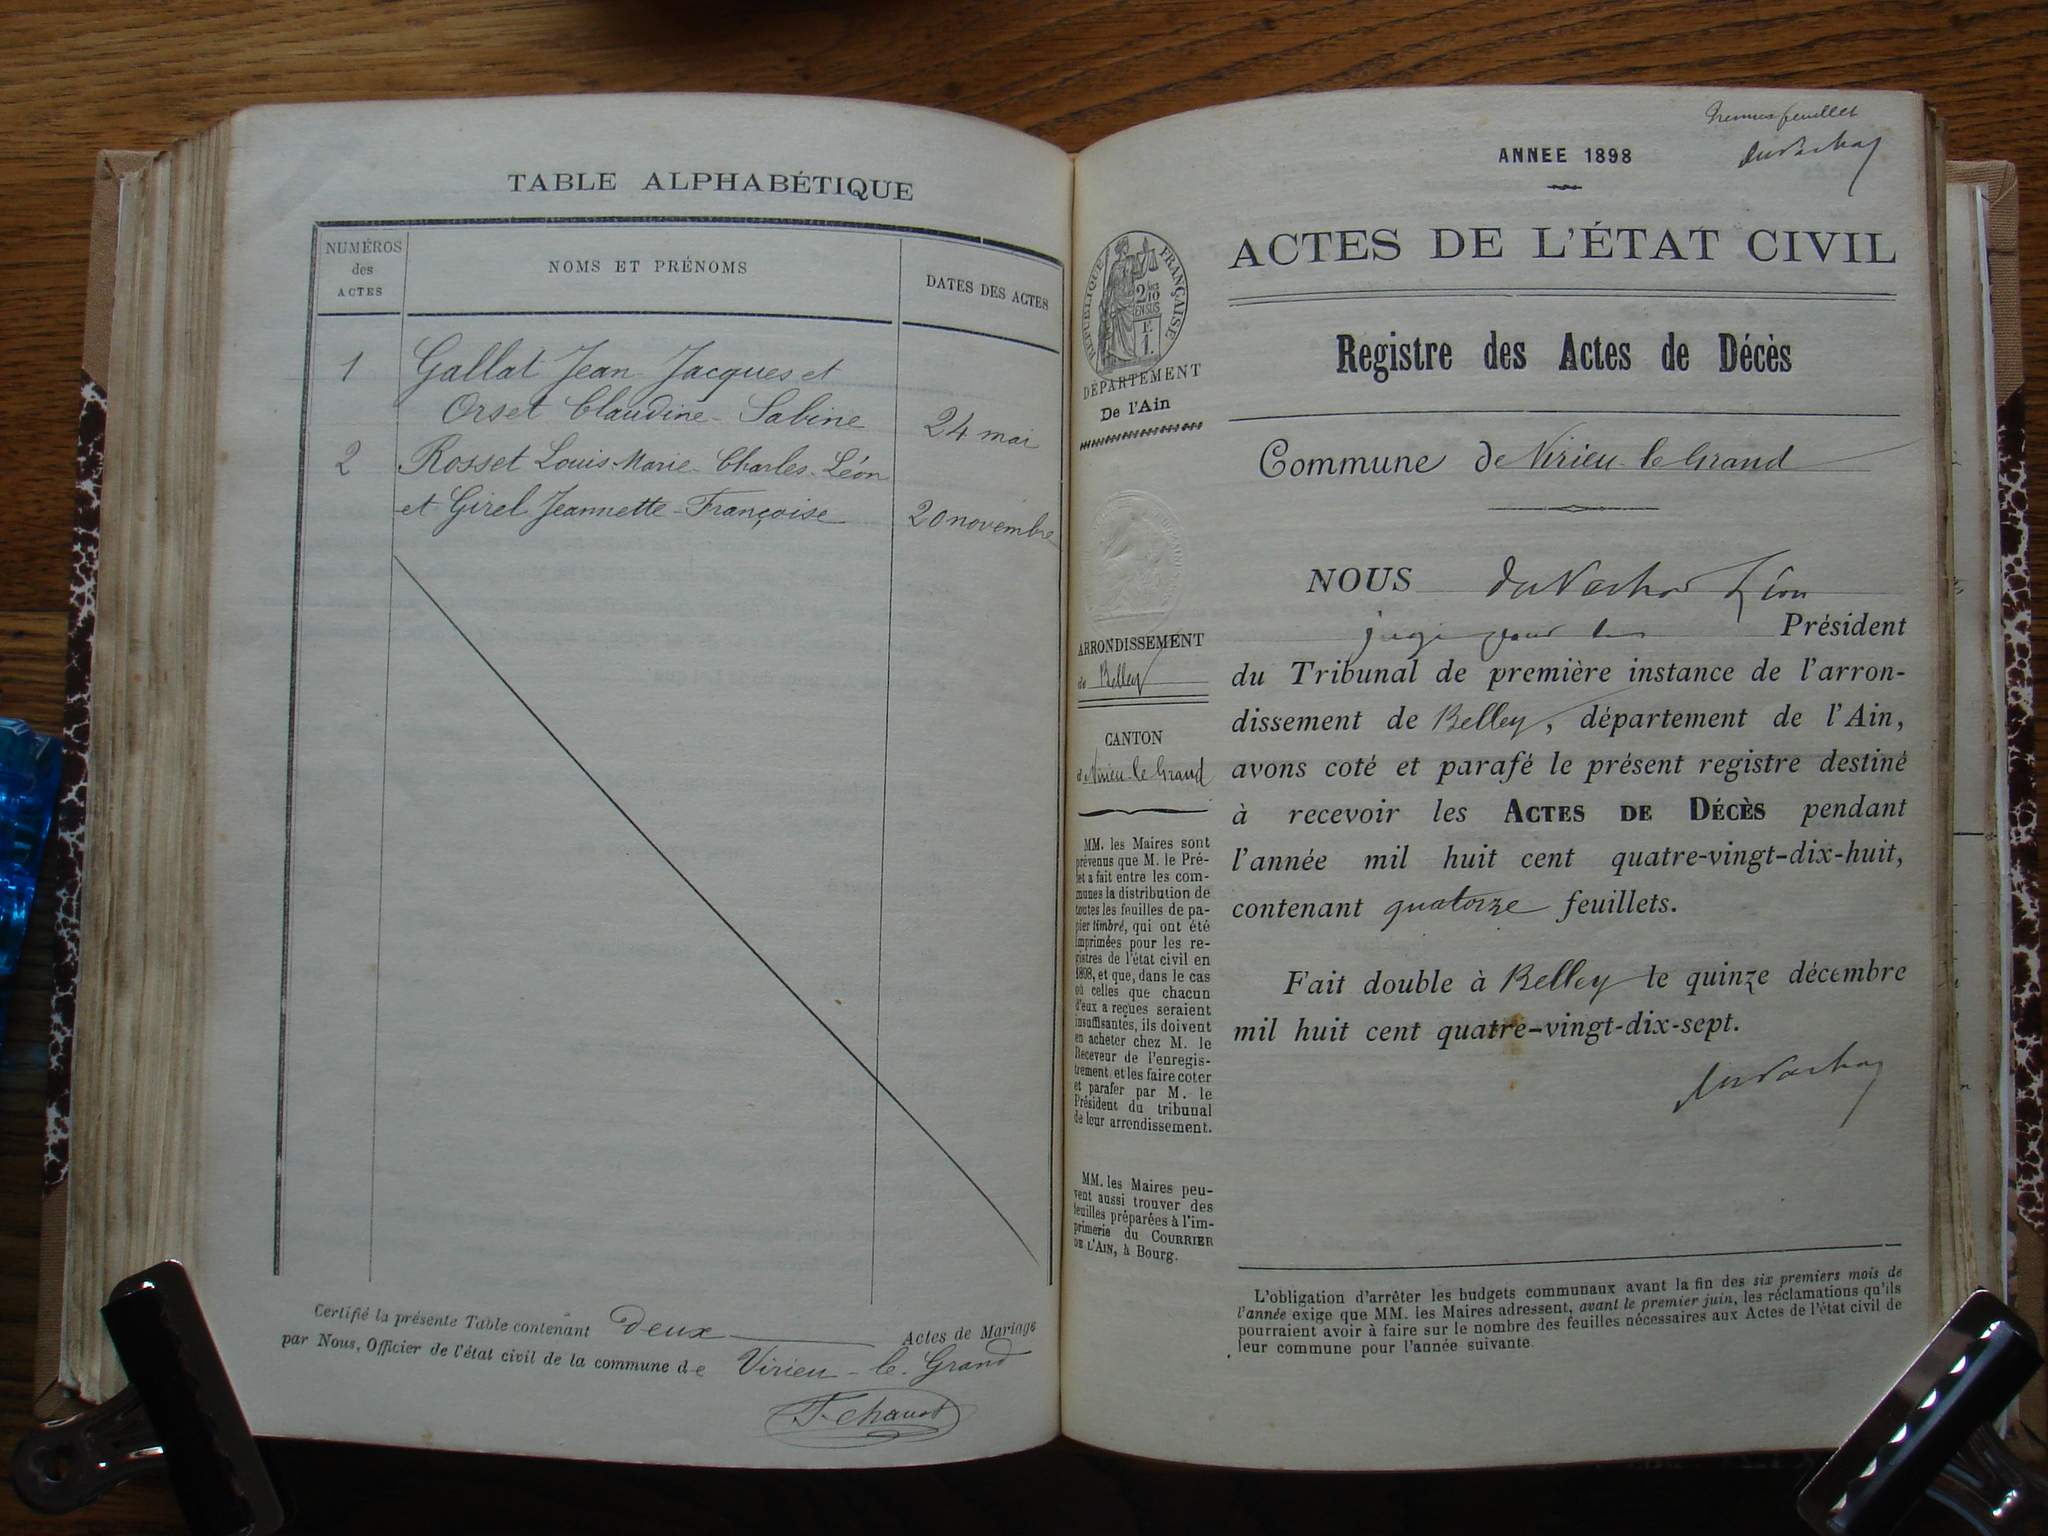 TABLE ALPHABÉTIQUE
NUMÉROS
des
ACTES
NOMS ET PRÉNOMS
DATES DES ACTES
1 Gallat Jean Jacques et
Orset Claudine-Sabine 24 mai
2 Rosset Louis-Marie-Charles-Léon
et Girel Jeannette-Françoise 20 novembre
Certifié la présente Table contenant deux Actes de Mariage
par Nous, Officier de l'état civil de la commune de Virieu-le-Grand
feuillet
ANNEE 1898
RÉPUBLIQUE FRANÇAISE
2/10
EN SUS
DÉPARTEMENT
De l'Ain
ARRONDISSEMENT
de Belley
CANTON
de Virieu-le-Grand
MM. les Maires sont
prévenus que M. le Pré-
fet a fait entre les com-
munes la distribution de
toutes les feuilles de pa-
pier timbré, qui ont été
imprimées pour les re-
gistres de l'état civil en
1898, et que, dans le cas
où celles que chacun
d'eux a reçues seraient
insuffisantes, ils doivent
en acheter chez M. le
Receveur de l'enregis-
trement et les faire coter
et parafer par M. le
Président du tribunal
de leur arrondissement.
MM. les Maires peu-
vent aussi trouver des
feuilles préparées à l'im-
primerie du COURRIER
DE L'AIN, à Bourg.
ACTES DE L'ÉTAT CIVIL
Registre des Actes de Décès
Commune de Virieu-le-Grand
NOUS Léon
juge pour le Président
du Tribunal de première instance de l'arron-
dissement de Belley, département de l'Ain,
avons coté et parafé le présent registre destiné
à recevoir les ACTES DE DÉCÈS pendant
l'année mil huit cent quatre-vingt-dix-huit,
contenant quatorze feuillets.
Fait double à Belley le quinze décembre
mil huit cent quatre-vingt-dix-sept.
L'obligation d'arrêter les budgets communaux avant la fin des six premiers mois de
l'année exige que MM. les Maires adressent, avant le premier juin, les réclamations qu'ils
pourraient avoir à faire sur le nombre des feuilles nécessaires aux Actes de l'état civil de
leur commune pour l'année suivante.